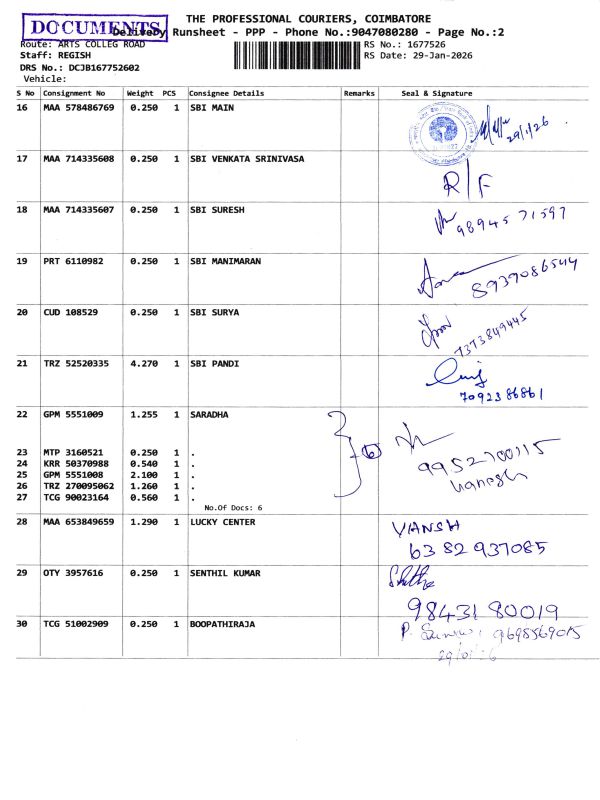 THE PROFESSIONAL COURIERS, COIMBATORE
DOCUMENTS
Delivery Runsheet - PPP - Phone No.:9047080280 - Page No.:2
Route: ARTS COLLEG ROAD
RS No.: 1677526
Staff: REGISH
RS Date: 29-Jan-2026
DRS No.: DCJB167752602
Vehicle:
S No Consignment No Weight PCS Consignee Details Remarks Seal & Signature
16 MAA 578486769 0.250 1 SBI MAIN 29/1/26
17 MAA 714335608 0.250 1 SBI VENKATA SRINIVASA R/F
18 MAA 714335607 0.250 1 SBI SURESH 9894571597
19 PRT 6110982 0.250 1 SBI MANIMARAN 8939086544
20 CUD 108529 0.250 1 SBI SURYA 7373849445
21 TRZ 52520335 4.270 1 SBI PANDI 7092386861
22 GPM 5551009 1.255 1 SARADHA 6 9952700115
23 MTP 3160521 0.250 1 .
24 KRR 50370988 0.540 1 .
25 GPM 5551008 2.100 1 .
26 TRZ 270095062 1.260 1 .
27 TCG 90023164 0.560 1 .
No.Of Docs: 6
28 MAA 653849659 1.290 1 LUCKY CENTER VANSH
6382937085
29 OTY 3957616 0.250 1 SENTHIL KUMAR
9843180019
30 TCG 51002909 0.250 1 BOOPATHIRAJA 9698569015
29/01/26